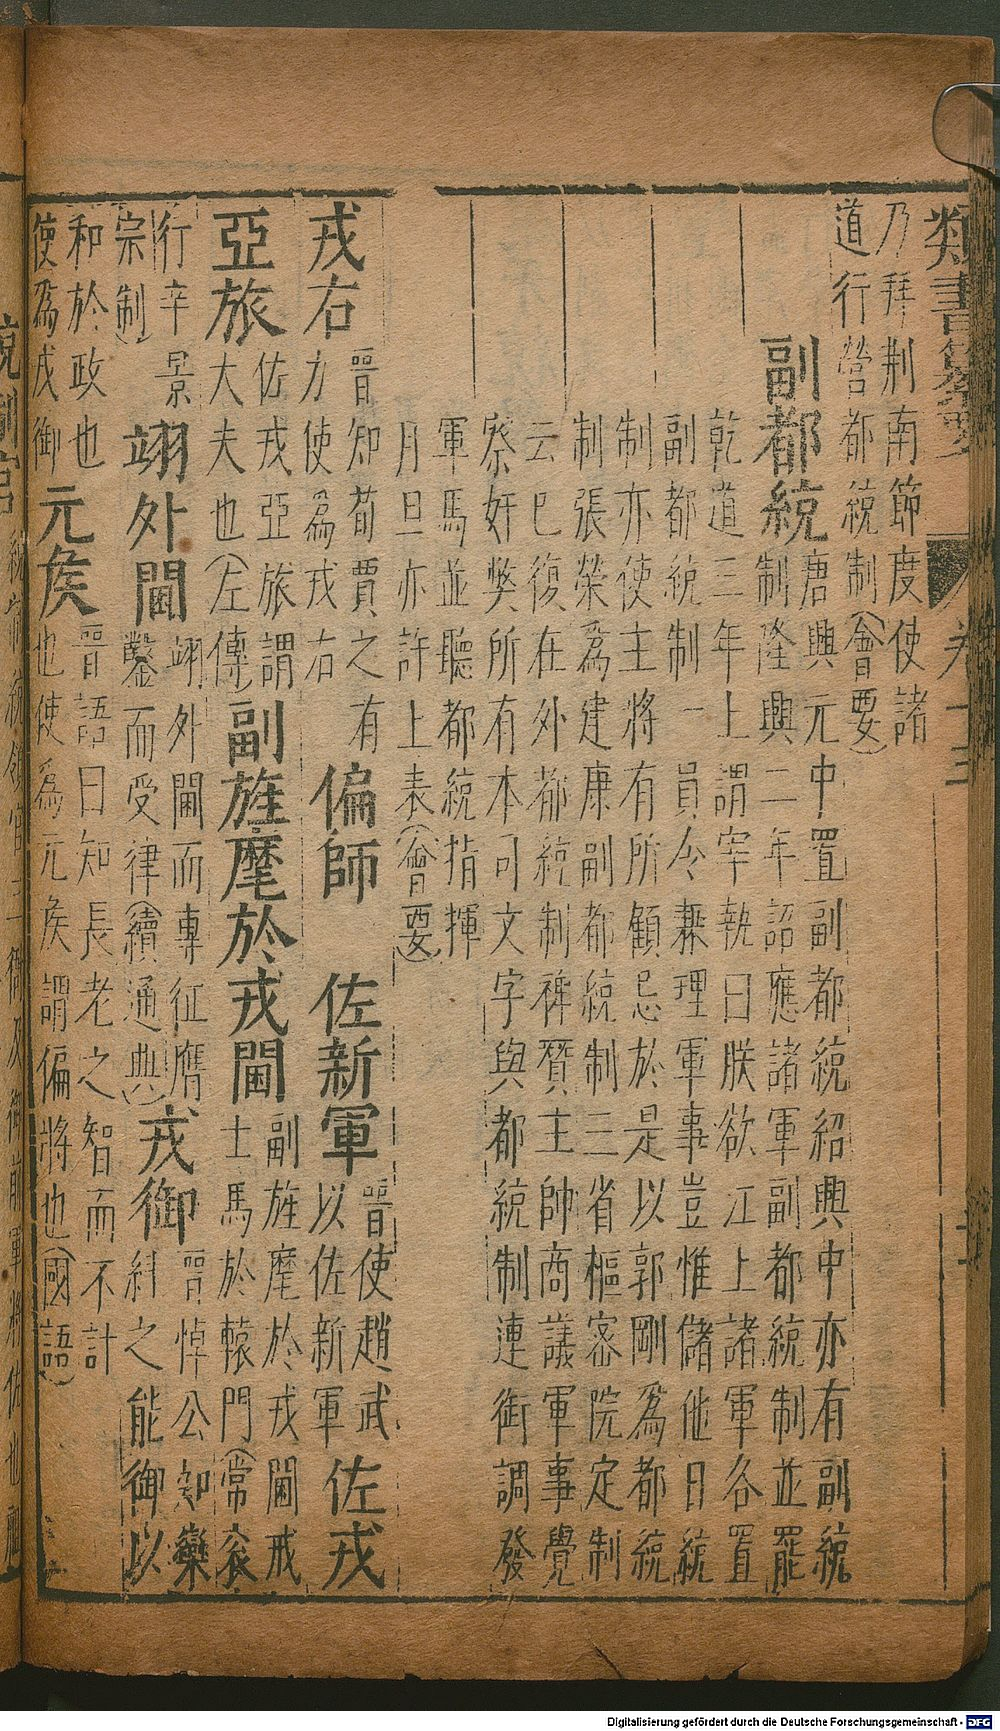 類書纂要 卷十三
乃拜荆南節度使諸
道行營都統制(會要)
副都統
唐興元中置副都統紹興中亦有副統
制隆興二年詔應諸軍副都統制並罷
乾道三年上謂宰執曰朕欲江上諸軍各置
副都統制一員令兼理軍事豈惟儲他日統
制亦使主將有所顧忌於是以郭剛為都統
制張榮為建康副都統制三省樞密院定制
云已復在外都統制裨贊主帥商議軍事覺
察奸獘所有本司文字與都統制連銜調發
軍馬並聽都統指揮
月旦亦許上表(會要)
戎右
晉知荀賈之有
力使為戎右
偏師 佐新軍
晉使趙武
以佐新軍
佐戎
亞旅
佐戎亞旅謂
大夫也(左傳)
副旌麾於戎閫
副旌麾於戎閫戒
士馬於轅門(常衮
行辛景
宗制)
翊外閫
翊外閫而專征膺
鑿而受律(續通典)
戎御
晉悼公知欒
糾之能御以
和於政也
使為戎御
元矦
晉語曰知長老之智而不計
也使為元矦謂偏將也(國語)
Digitalisierung gefördert durch die Deutsche Forschungsgemeinschaft - DFG